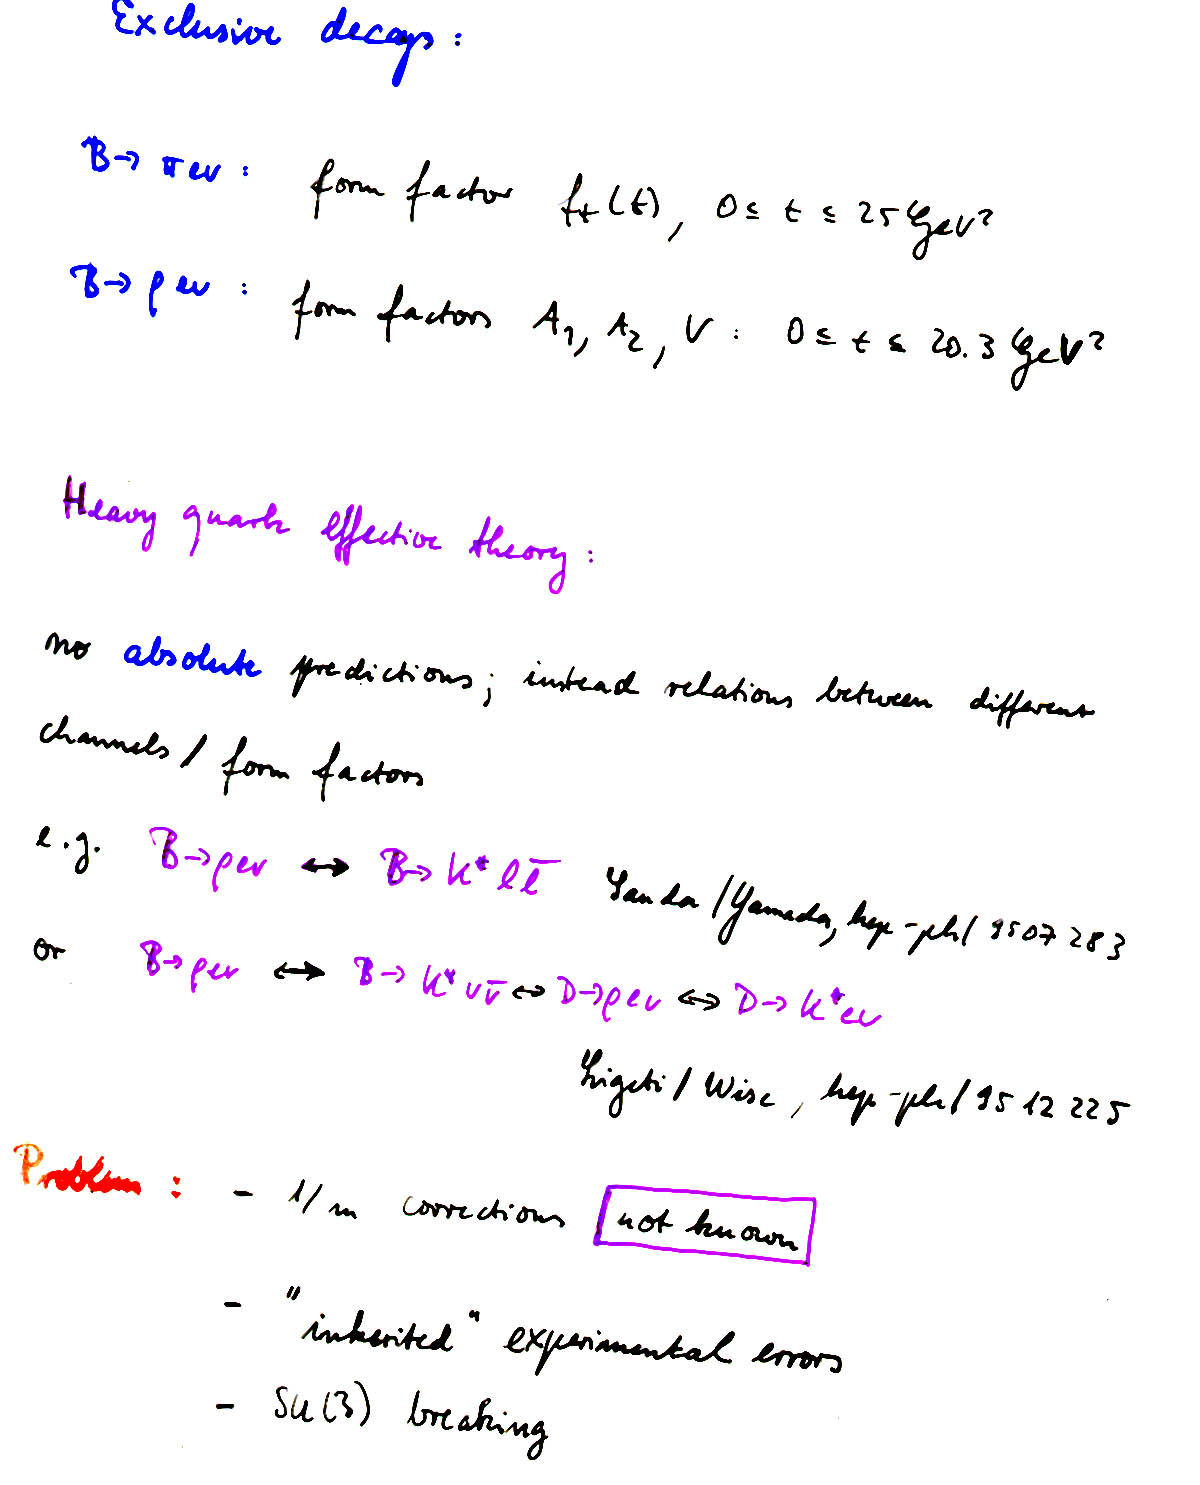 Exclusive decays:
B→ πeν: form factor f₊(t), 0 ≤ t ≤ 25 GeV²
B→ ρeν: form factors A₁, A₂, V: 0 ≤ t ≤ 20.3 GeV²
Heavy quark effective theory:
no absolute predictions; instead relations between different
channels / form factors
e.g. B→ρeν ↔ B→ K* l l̄ Sanda / Yamada, hep-ph/ 9507283
or B→ρeν ↔ B→ K* ν ν̄ ↔ D→ρeν ↔ D→ K* eν
Ligeti / Wise, hep-ph/ 9512225
Problem: - 1/m corrections not known
- "inherited" experimental errors
- SU(3) breaking